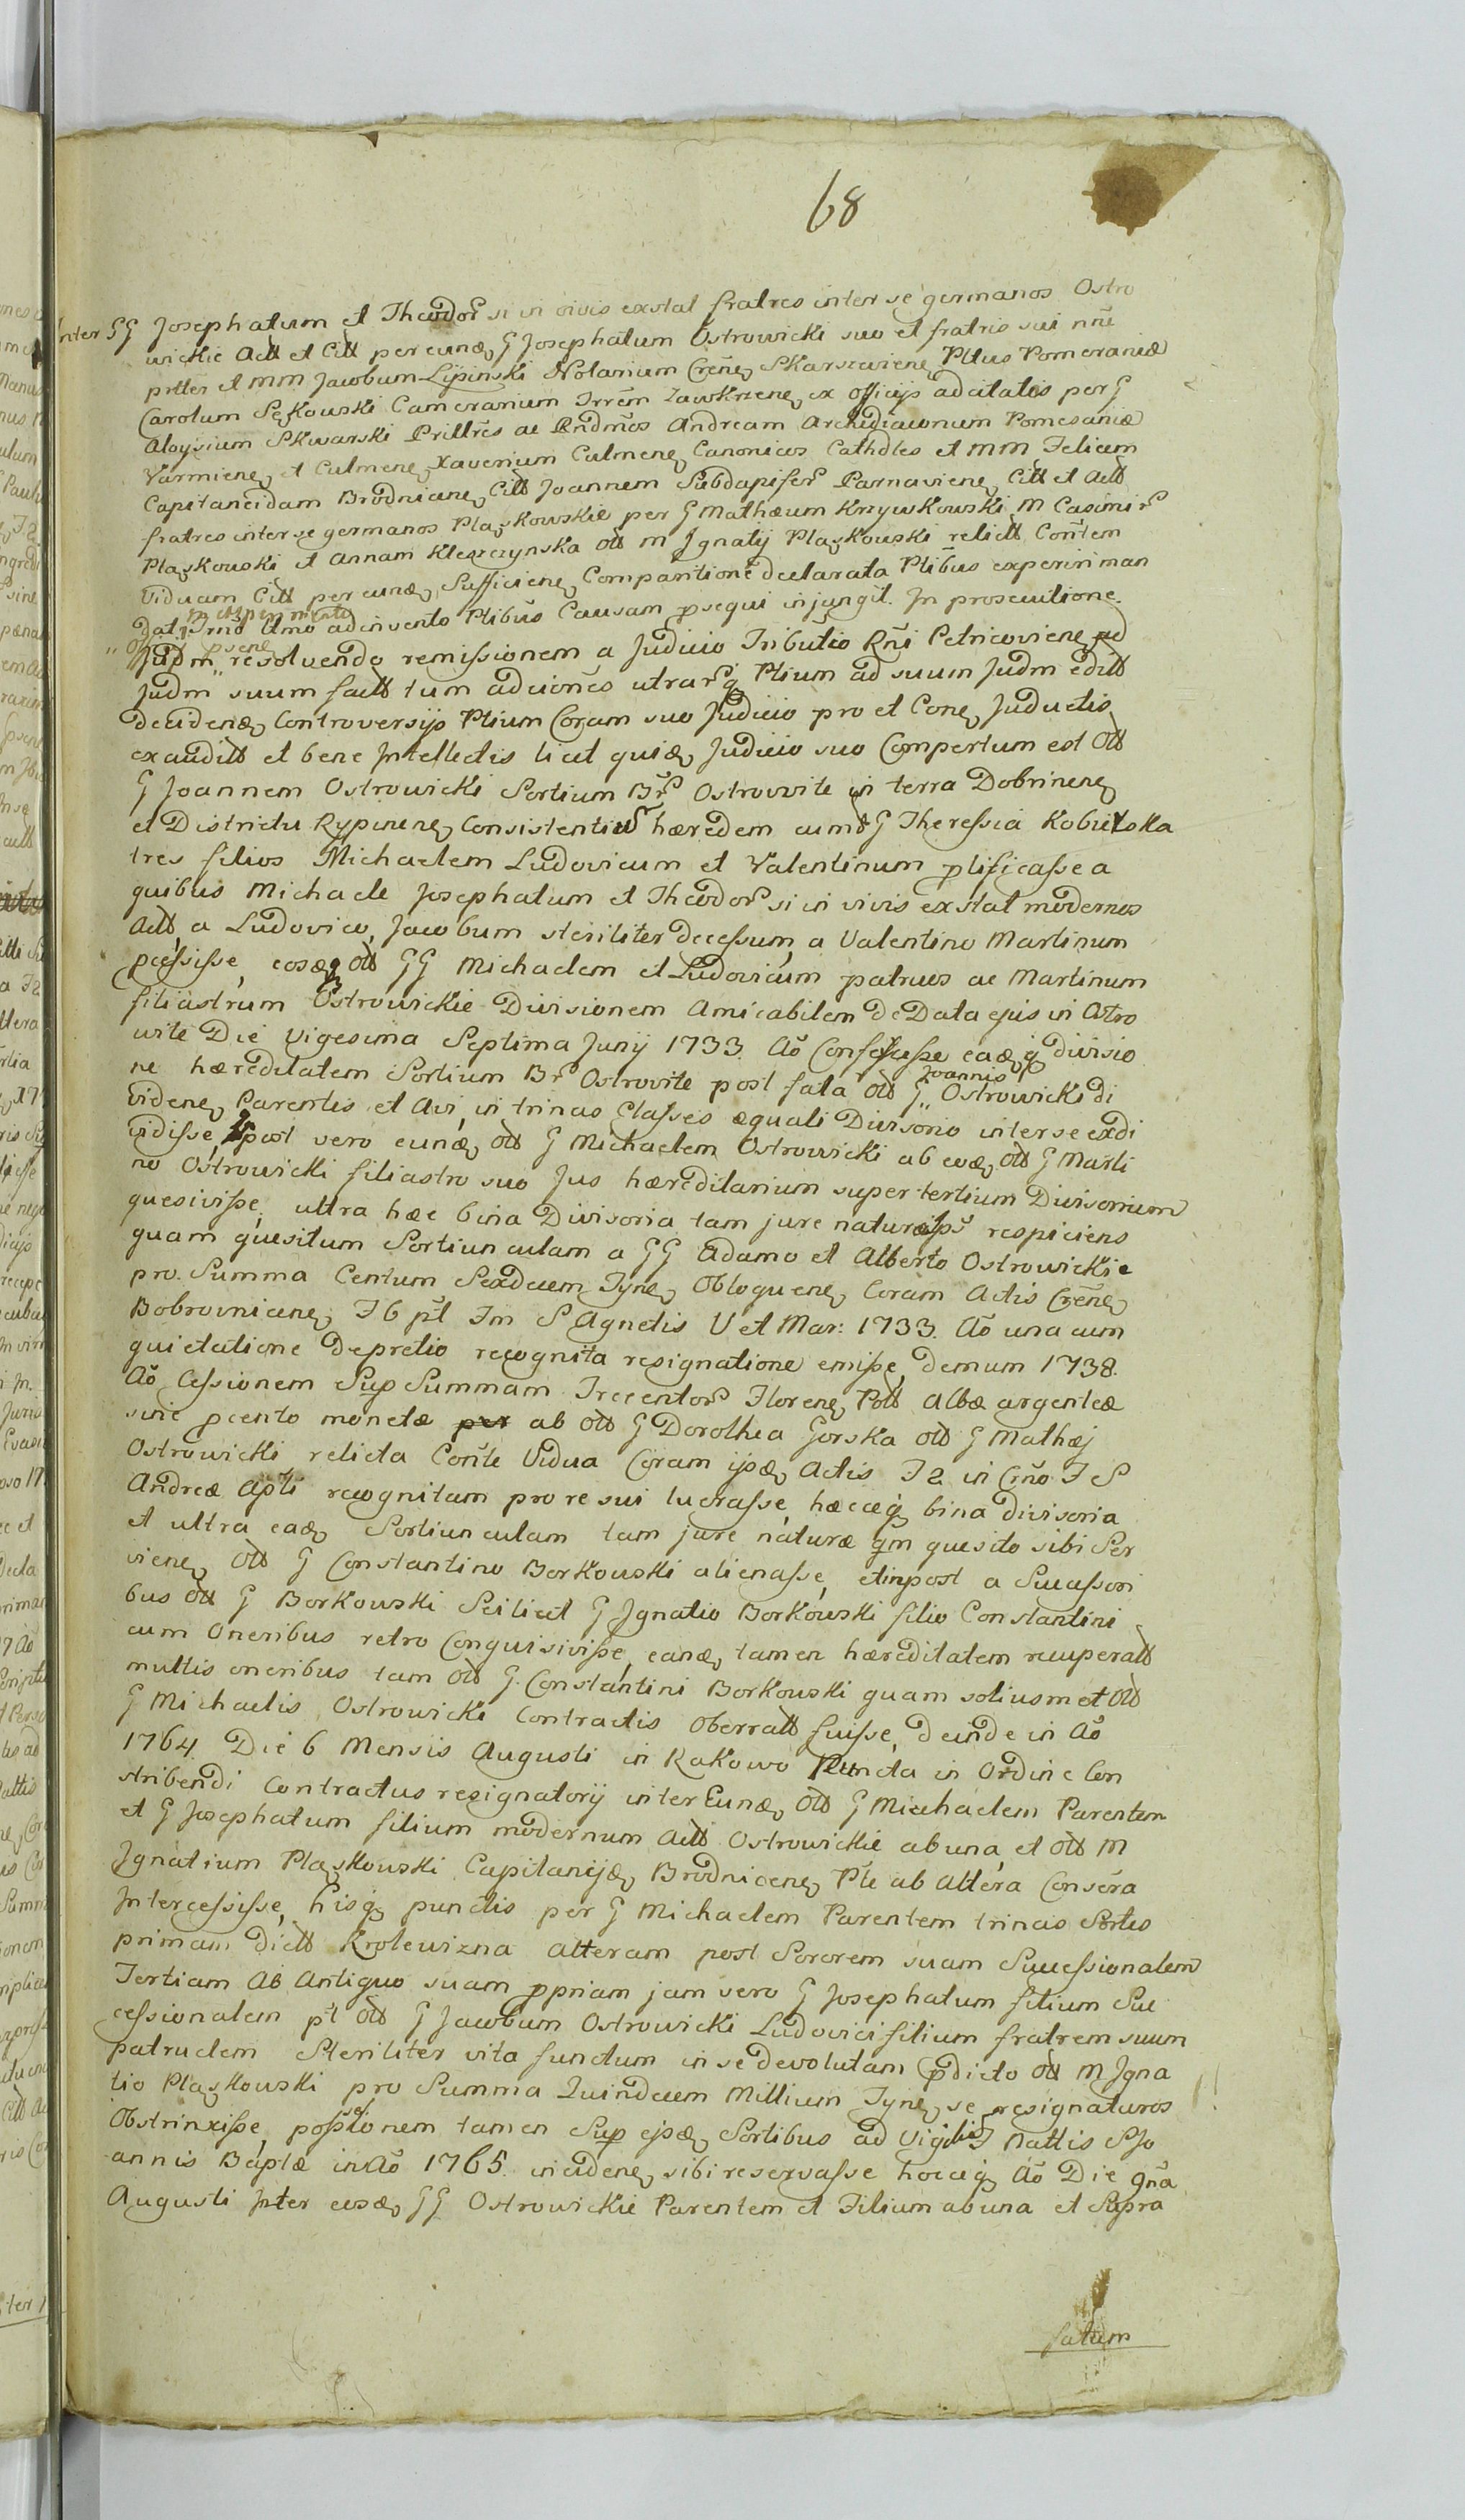 68
Inter GG Josephatum et Theodor si in vivis exstat fratres inter se germanos Ostro
wickie Actt et Citt per eund G Josephatum Ostrowicki suo et fratris sui nñe
et MM Jacobum Lipinski Notarium Crẽñ Skarszewien Pttus Pomeraniæ
Carolum Sękowski Camerarium Trrẽm Zawkrzen ex officijs adcitatos per G
Aloysium Skwarski Prillr̃es ac Rndm̃os Andream Archidiaconum Pomesaniæ
Varmien et Culmen Xaverium Culmen Canonicos Cathdles et MM Felicem
Capitaneidam Brodnicen Citt Joannem Subdapifer Parnavien Citt et Actt
fratres inter se germanos Pląskowskie per G Mathæum Krzywkowski M Casimir
Pląskowski et Annam Kleszczynska ott M Ignatij Pląskowski relictt Cont̃em
Viduam Citt per eund Sufficien Comparitione declarata Ptibus experiri man
dat in experimento adinvento Ptibus Causam psequi injungit. In prosecutione
Judm psen resolvendo remissionem a Judicio Tributio Rñi Petricovien ad
Judm suum factt tum adciones utrarq Ptium ad suum Judm editt
deciden Controversijs Ptium Coram suo Judicio pro et Con Juductis
exauditt et bene Intellectis licet quid Judicio suo Compertum est Ott
G Joannem Ostrowicki Sortium Br Ostrowite in terra Dobrinen
et Districtu Rypinen Consistentiu hæredem cum G Theressia Kobulska
tres filios Michaelem Ludovicum et Valentinum plificasse a
quibus Michaele Josephatum et Theodor si in vivis exstat modernos
Actt a Ludovico, Jacobum steriliter decessum, a Valentino Martinum
pcessisse, eosdq ott GG Michaelem et Ludovicum patruos ac Martinum
filiastrum Ostrowickie Divisionem Amicabilem De Data ejus in Ostro
wite Die Vigesima Septima Junij 1733. Aõ Confecisse eadq divisio
ne hæreditatem Sortium Br Ostrovite post fata ott G Joannis Ostrowicki di
viden Parentis et Avi, in trinas Classes æquali Divisorio inter se exdi
vidisse, post vero eund ott G Michaelem Ostrowicki ab eod ott G Marti
no Ostrowicki filiastro suo Jus hæreditarium super tertium Divisorium
quesivisse, ultra hæc bina Divisoria tam jure naturæ ips respiciens
quam quesitum Sortiunculam a GG Adamo et Alberto Ostrowickie
pro Summa Centum Sexdecem Tyn Obloquen Coram Actis Crẽñ
Bobrovnicen F 6 pt̃ Fm S Agnetis V et Mar: 1733. Aõ una cum
quietatione de pretio recognita resignatione emisse, demum 1738.
Aõ Cessionem Sup Summam Trecentor Floren Pott Albæ argenteæ
sine pcento monetæ per ab ott G Dorothea Gorska ott G Mathej
Ostrowicki relicta Cont̃e Vidua Coram ijsd Actis F 2 in Crño F S
Andreæ Apt̃i recognitam pro re sui lucrasse, hæceq bina divisoria
et ultra ead Sortiunculam tam jure naturæ qm quesito sibi Ser
vien ott G Constantino Borkowski alienasse, et inpost a Successori
bus ott G Borkowski Scilicet G Ignatio Borkowski filio Constantini
cum Oneribus retro Conquisivisse, eand tamen hæreditatem recuperatt
multis oneribus tam ott G Constantini Borkowski quam soliusmet ott
G Michaelis Ostrowicki Contractis Oberratt fuisse, deinde in Aõ
1764 Die 6 Mensis Augusti in Rakowo Puncta in Ordine Con
stribendi Contractus resignatorij inter Eund ott G Michaelem Parentem
et G Josephatum filium modernum Actt Ostrowickie ab una, et ott M
Ignatium Pląskowski Capitanijd Brodnicen Pte ab altera Conser̃a
Intercessisse, hisq punctis per G Michaelem Parentem trinas Sortes
primam dictt Krolewizna alteram post Sororem suam Successionalem
Tertiam Ab Antiquo suam ppriam jam vero G Josephatum filium Suc
cessionalem pt̃ ott G Jacobum Ostrowicki Ludovici filium fratrem suum
patruelem Steriliter vita functum in se devolutam pdicto ott M Igna
tio Pląskowski pro Summa Quindecem Millium Tyn se resignaturos
Obstrinxisse, possesionem tamen Sup ejsd Sortibus ad Vigiliã F Nattis S Jo
annis Baptæ in Aõ 1765 inciden sibi reservasse, hoceq Aõ Die 9na
Augusti Inter eosd GG Ostrowickie Parentem et Filium ab una et Supra
fatum